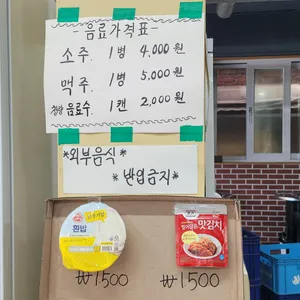 -음료가격표-
소주. 1병 4,000원
맥주. 1병 5,000원
음료수. 1캔 2,000원
*외부음식*
*반입금지*
흰밥
맛김치
₩1500
₩1500